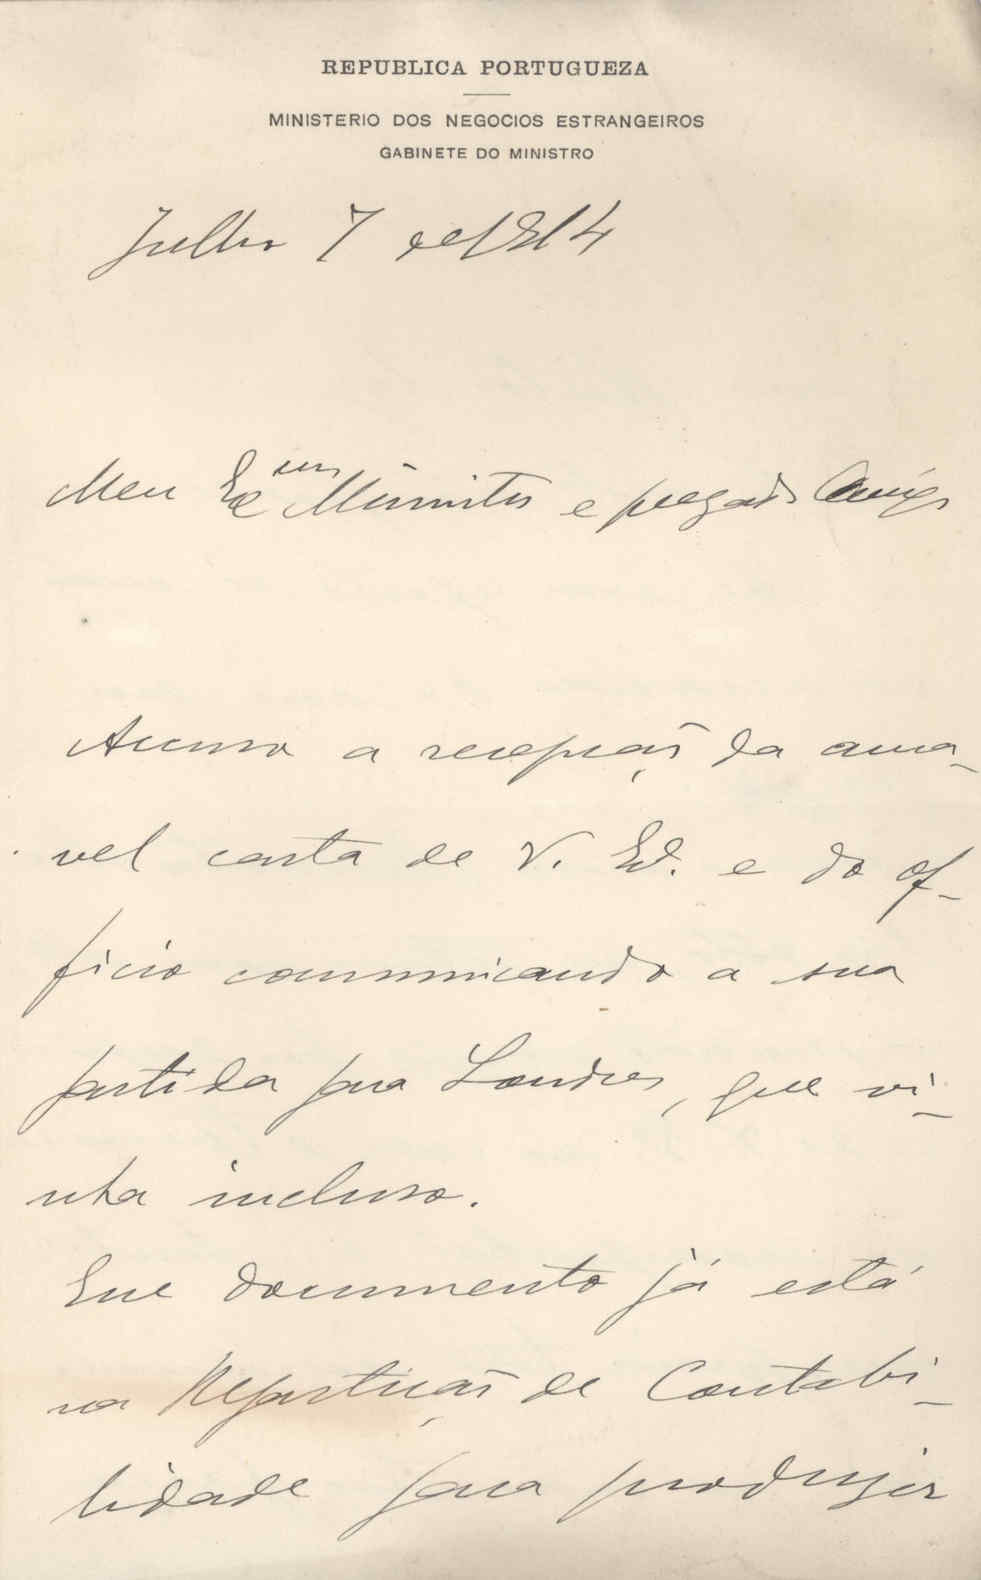 REPUBLICA PORTUGUEZA
MINISTERIO DOS NEGOCIOS ESTRANGEIROS
GABINETE DO MINISTRO
Julho 7 de 1914
Meu Exmo Ministro e prezado Amigo
Accuso a recepção da ama-
vel carta de V. Exª. e do of-
ficio communicando a sua
partida para Londres, que vi-
nha incluso.
Esse documento já está
na Repartição de Contabi-
lidade para produzir